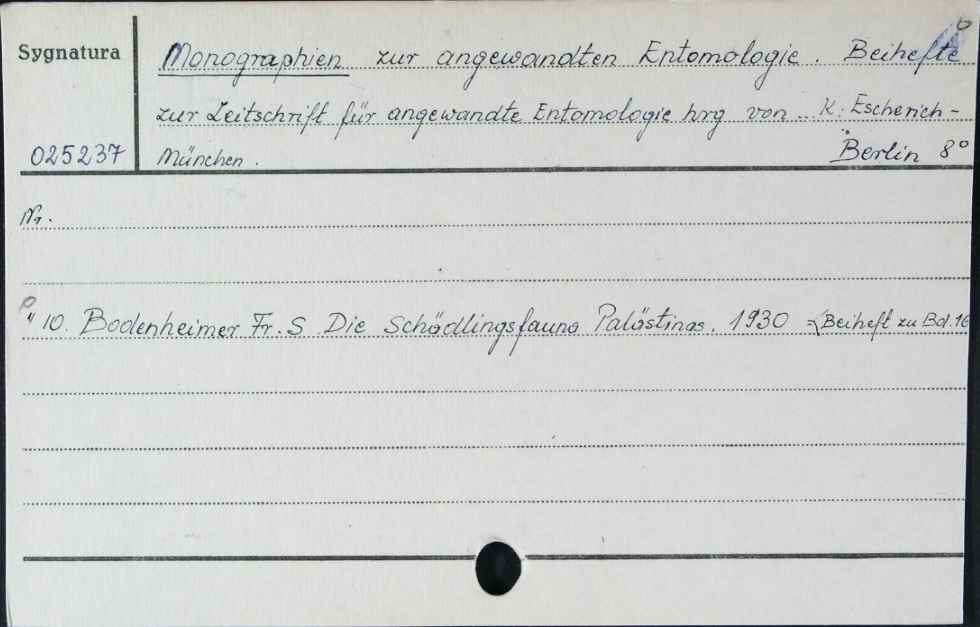 Sygnatura
Monographien zur angewandten Entomologie. Beihefte
zur Zeitschrift für angewandte Entomologie hrg von... K. Escherich-
025237 München. Berlin 8°
Nr.
" 10. Bodenheimer Fr. S. Die Schädlingsfauna Palästinas. 1930 =(Beiheft zu Bd. 16